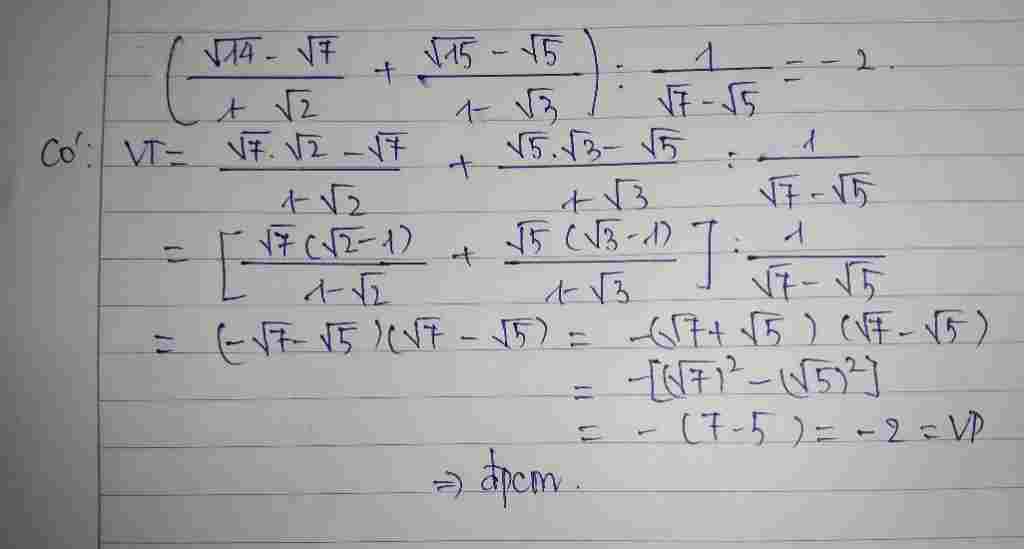 (√14 - √7 / 1 - √2 + √15 - √5 / 1 - √3) : 1 / √7 - √5 = - 2.
Có: VT = √7.√2 - √7 / 1 - √2 + √5.√3 - √5 / 1 - √3 : 1 / √7 - √5
= [√7 (√2 - 1) / 1 - √2 + √5 (√3 - 1) / 1 - √3] : 1 / √7 - √5
= (-√7 - √5)(√7 - √5) = -(√7 + √5) (√7 - √5)
= -[(√7)² - (√5)²]
= - (7 - 5) = - 2 = VP
⇒ đpcm.